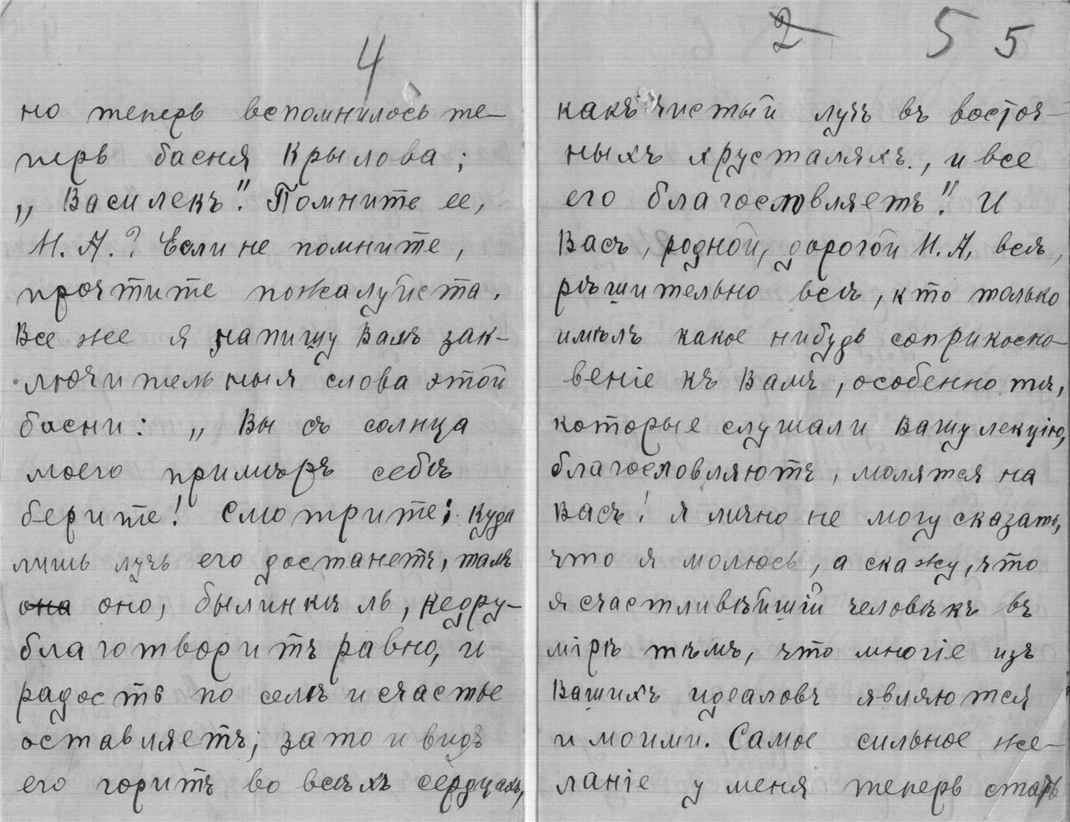 4
но теперь вспомнилось те-
перь басня Крылова;
„Василекъ". Помните ее,
И. А.? Если не помните,
прочтите пожалуйста.
Все же я напишу Вамъ зак-
лючительныя слова этой
басни: „Вы съ солнца
моего примѣръ себѣ
берите! Смотрите: куда
лишь лучъ его достанетъ, тамъ
она оно, былинкѣ ль, кедру-
благотворитъ равно, и
радость по семъ и счастье
оставляетъ; зато и видъ
его горитъ во всѣхъ сердцахъ,
2 5 5
какъ чистый лучъ въ восточ-
ныхъ хрусталяхъ, и все
его благословляетъ". И
Васъ, родной, дорогой И. А, всѣ,
рѣшительно всѣ, кто только
имѣлъ какое нибудь соприкосно-
веніе къ Вамъ, особенно тѣ,
которые слушали Вашу лекцію,
благословляютъ, молятся на
Васъ! Я лично не могу сказать,
что я молюсь, а скажу, что
я счастливѣйшій человѣкъ въ
мірѣ тѣмъ, что многіе изъ
Вашихъ идеаловъ являются
и моими. Самое сильное же-
ланіе у меня теперь стать